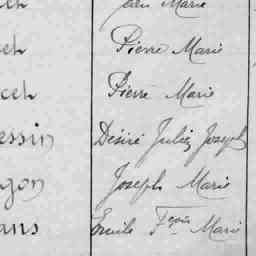 Jean Marie
Pierre Marie
cel Pierre Marie
essin Désiré Jules Joseph
gon Joseph Marie
ans Emile Fçois Marie